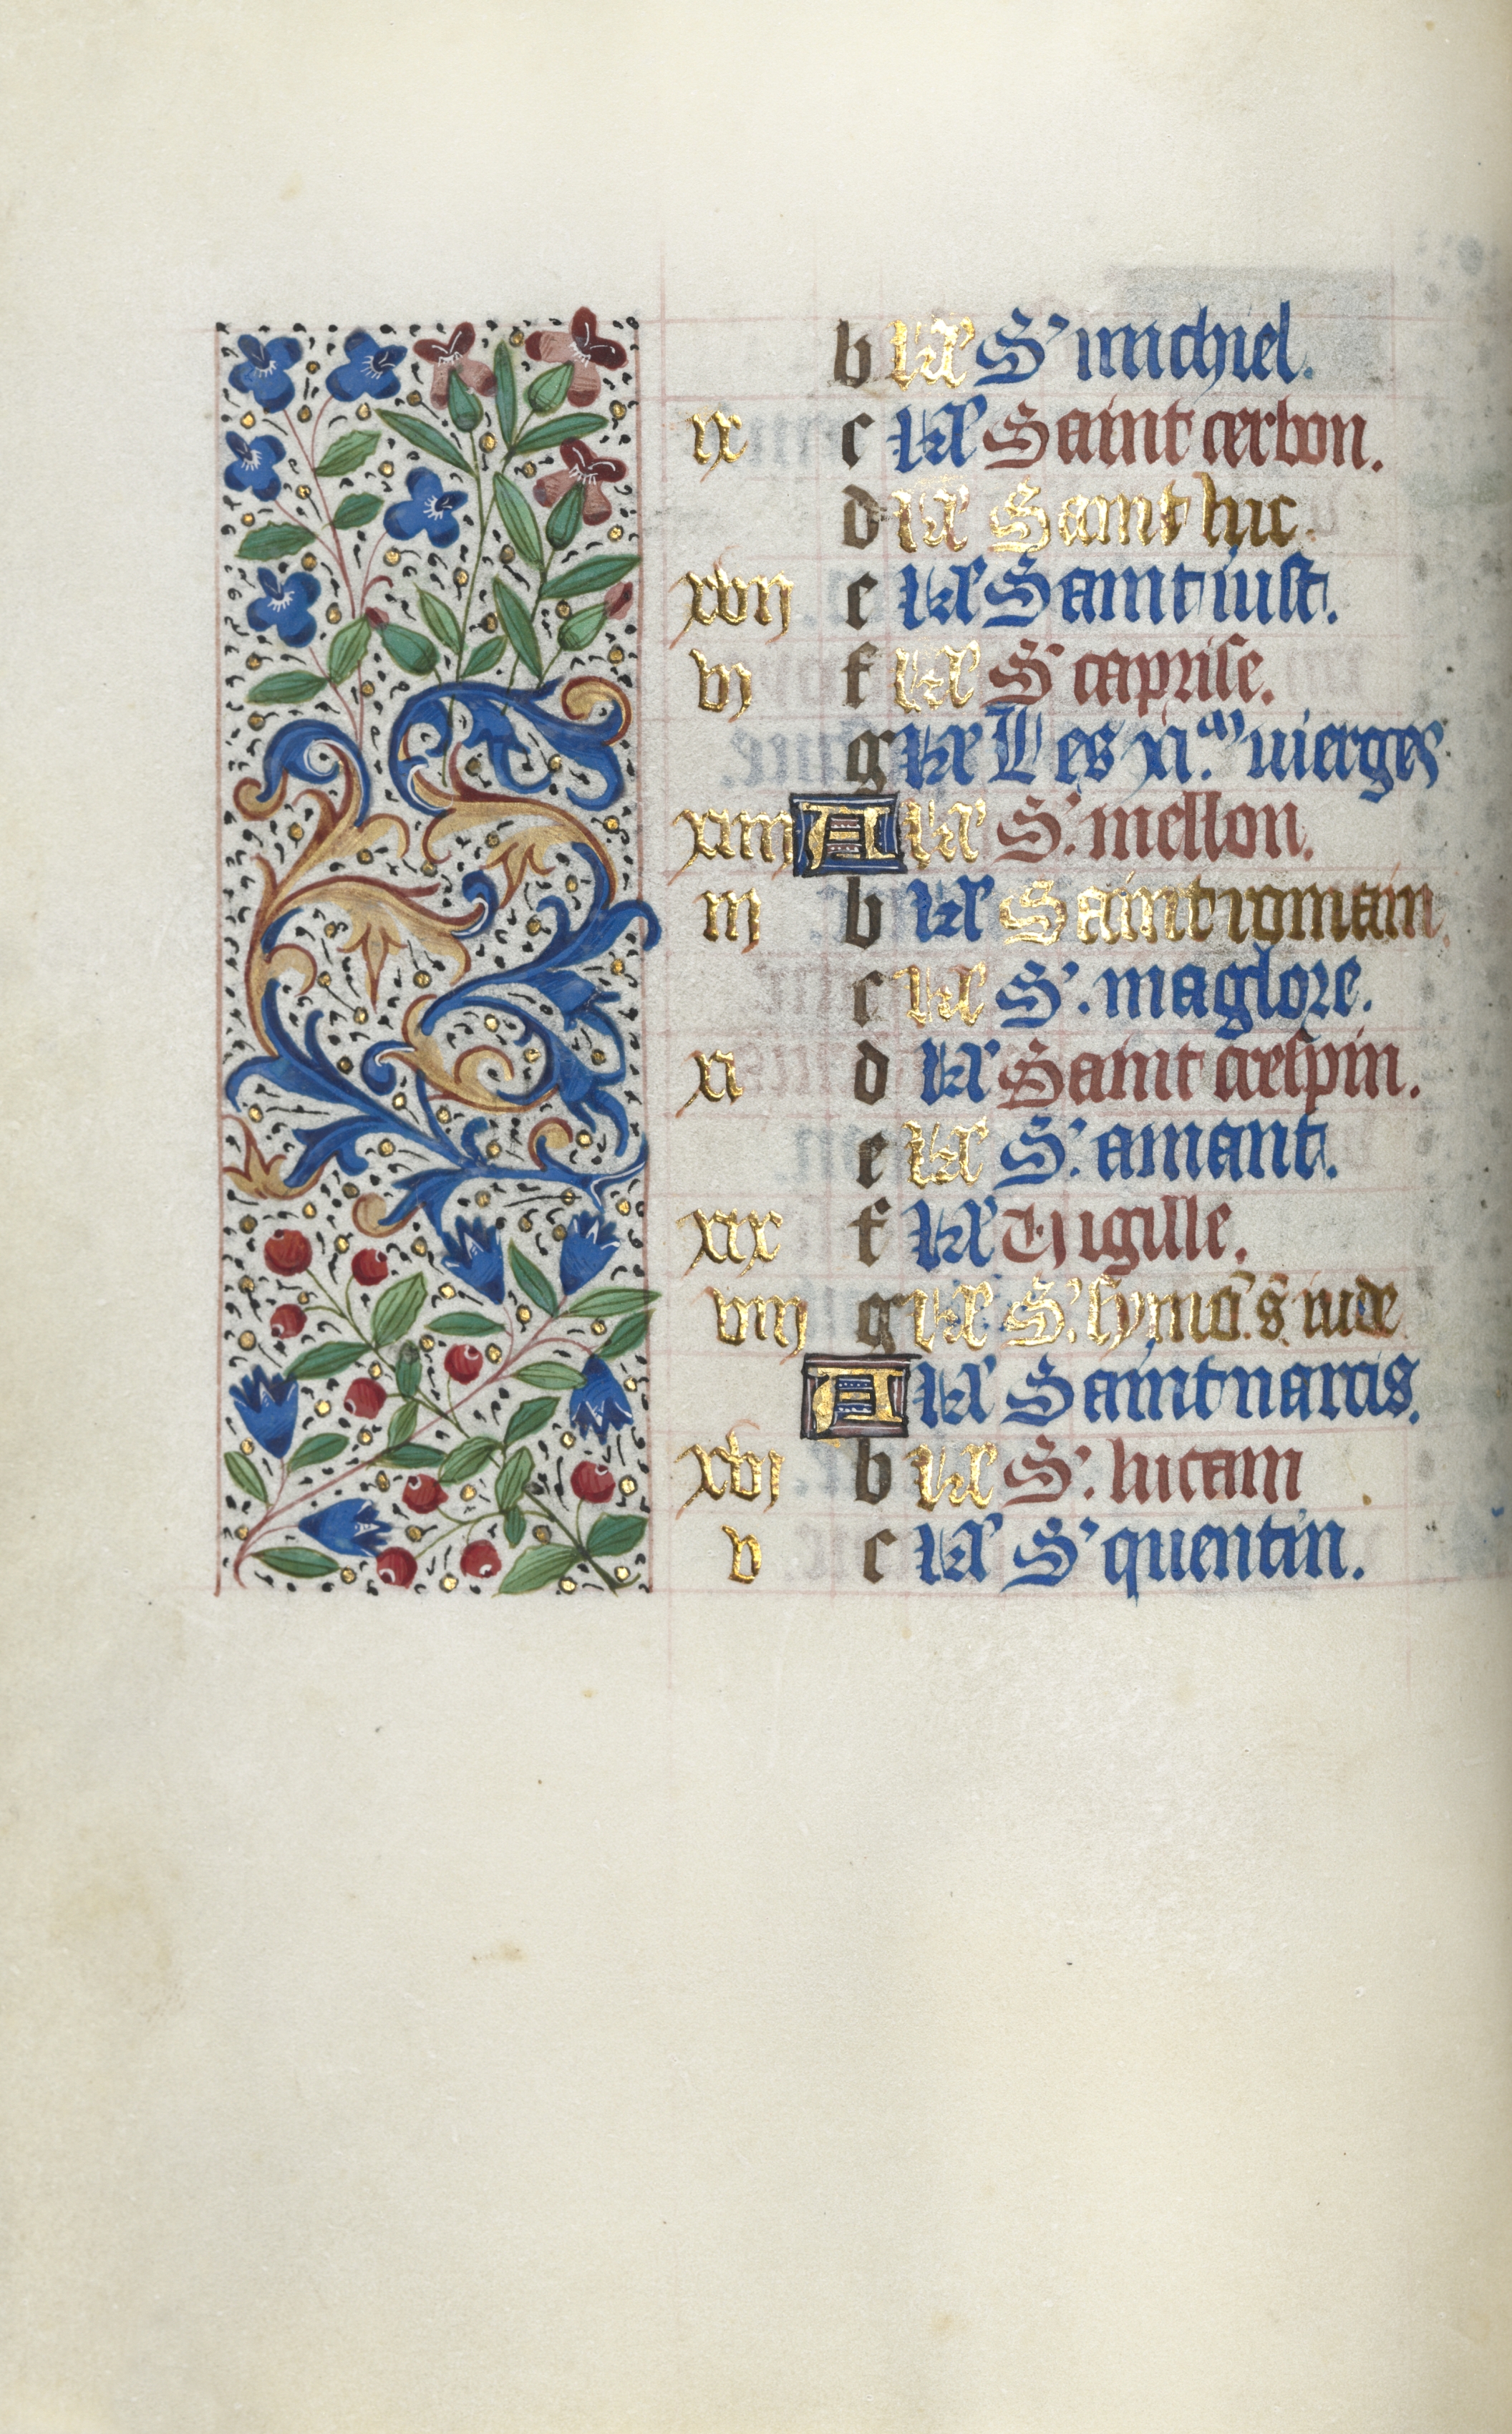 b kl S' michiel.
ix c kl Saint cerbon.
d kl Saint luc.
xvij e kl Saint iust.
vj f kl S' caprise.
g kl Les xi.m vierges
xiiij A kl S'. mellon.
iij b kl Saint romain.
c kl S'. maglore.
xi d kl Saint crespin.
e kl S'. amant.
xix f kl Vigille.
viij g kl S'. symō. s. iude
A kl Saint narcis.
xvj b kl S'. lucain
v c kl S' quentin.